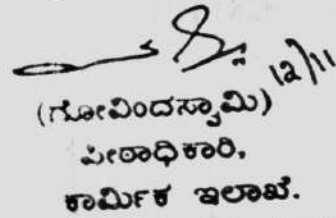 12/11
(ಗೋವಿಂದಸ್ವಾಮಿ)
ಪೀಠಾಧಿಕಾರಿ,
ಕಾರ್ಮಿಕ ಇಲಾಖೆ.